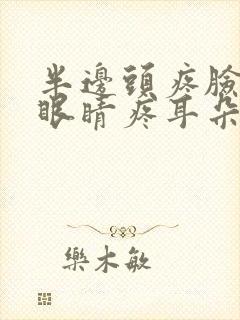 半邊頭疼臉
眼睛疼耳朵
樂木敏